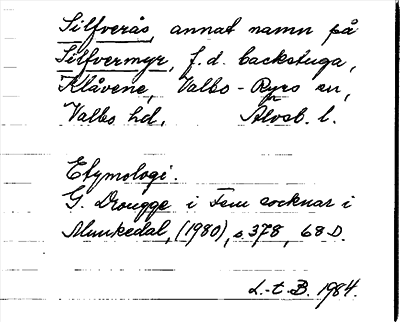 Silfverås, annat namn på
Silfvermyr, f.d. backstuga,
Klåvene, Valbo-Ryrs sn,
Valbo hd, Älvsb. l.
Etymologi.
G. Drougge i Fem socknar i
Munkedal, (1980), s 378, 68 D.
L.-t. B. 1984.